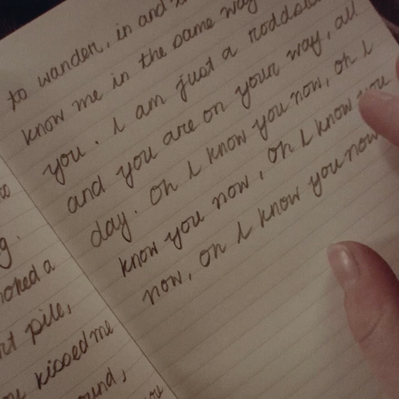 to wander, in and
know me in the same way
you. I am just a
and you are on your way, all
day. Oh I know you now, oh I
know you now, oh I know you
now, oh I know you now
g.
a
pile,
kissed me